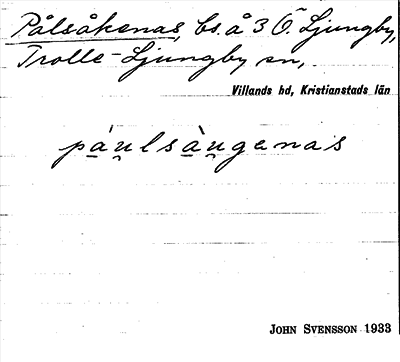 Pålsåkenas, bs. å 3 Ö. Ljungby,
Trolle-Ljungby sn,
Villands hd, Kristianstads län
pa̱u̯lsà̱u̯genas
JOHN SVENSSON 1933